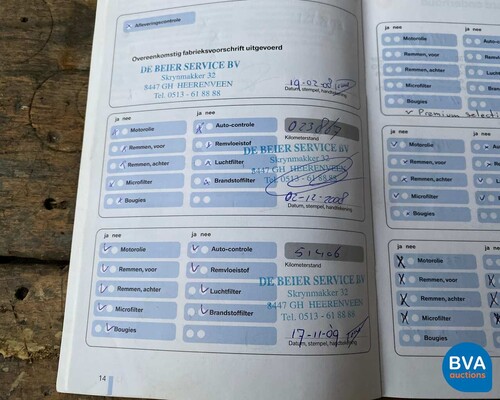 Afleveringscontrole
Overeenkomstig fabrieksvoorschrift uitgevoerd
DE BEIER SERVICE BV
Skrynmakker 32
8447 GH HEERENVEEN
Tel. 0513 - 61 88 88
19-02-08
Datum, stempel, handtekening
ja nee
ja nee
Motorolie
Auto-controle
Remmen, voor
Remvloeistof
Remmen, achter
Luchtfilter
Microfilter
Brandstoffilter
Bougies
Kilometerstand
DE BEIER SERVICE BV
Skrynmakker 32
8447 GH HEERENVEEN
Tel. 0513 - 61 88 88
02-12-2008
Datum, stempel, handtekening
ja nee
ja nee
Motorolie
Auto-controle
Remmen, voor
Remvloeistof
Remmen, achter
Luchtfilter
Microfilter
Brandstoffilter
Bougies
51406
Kilometerstand
DE BEIER SERVICE BV
Skrynmakker 32
8447 GH HEERENVEEN
Tel. 0513 - 61 88 88
17-11-09
Datum, stempel, handtekening
14
ja nee
Motorolie
Remmen, voor
Remmen, achter
Microfilter
Bougies
Premium
ja nee
Motorolie
Remmen, voor
Remmen, achter
Microfilter
Bougies
ja nee
Motorolie
Remmen, voor
Remmen, achter
Microfilter
Bougies
BVA
auctions